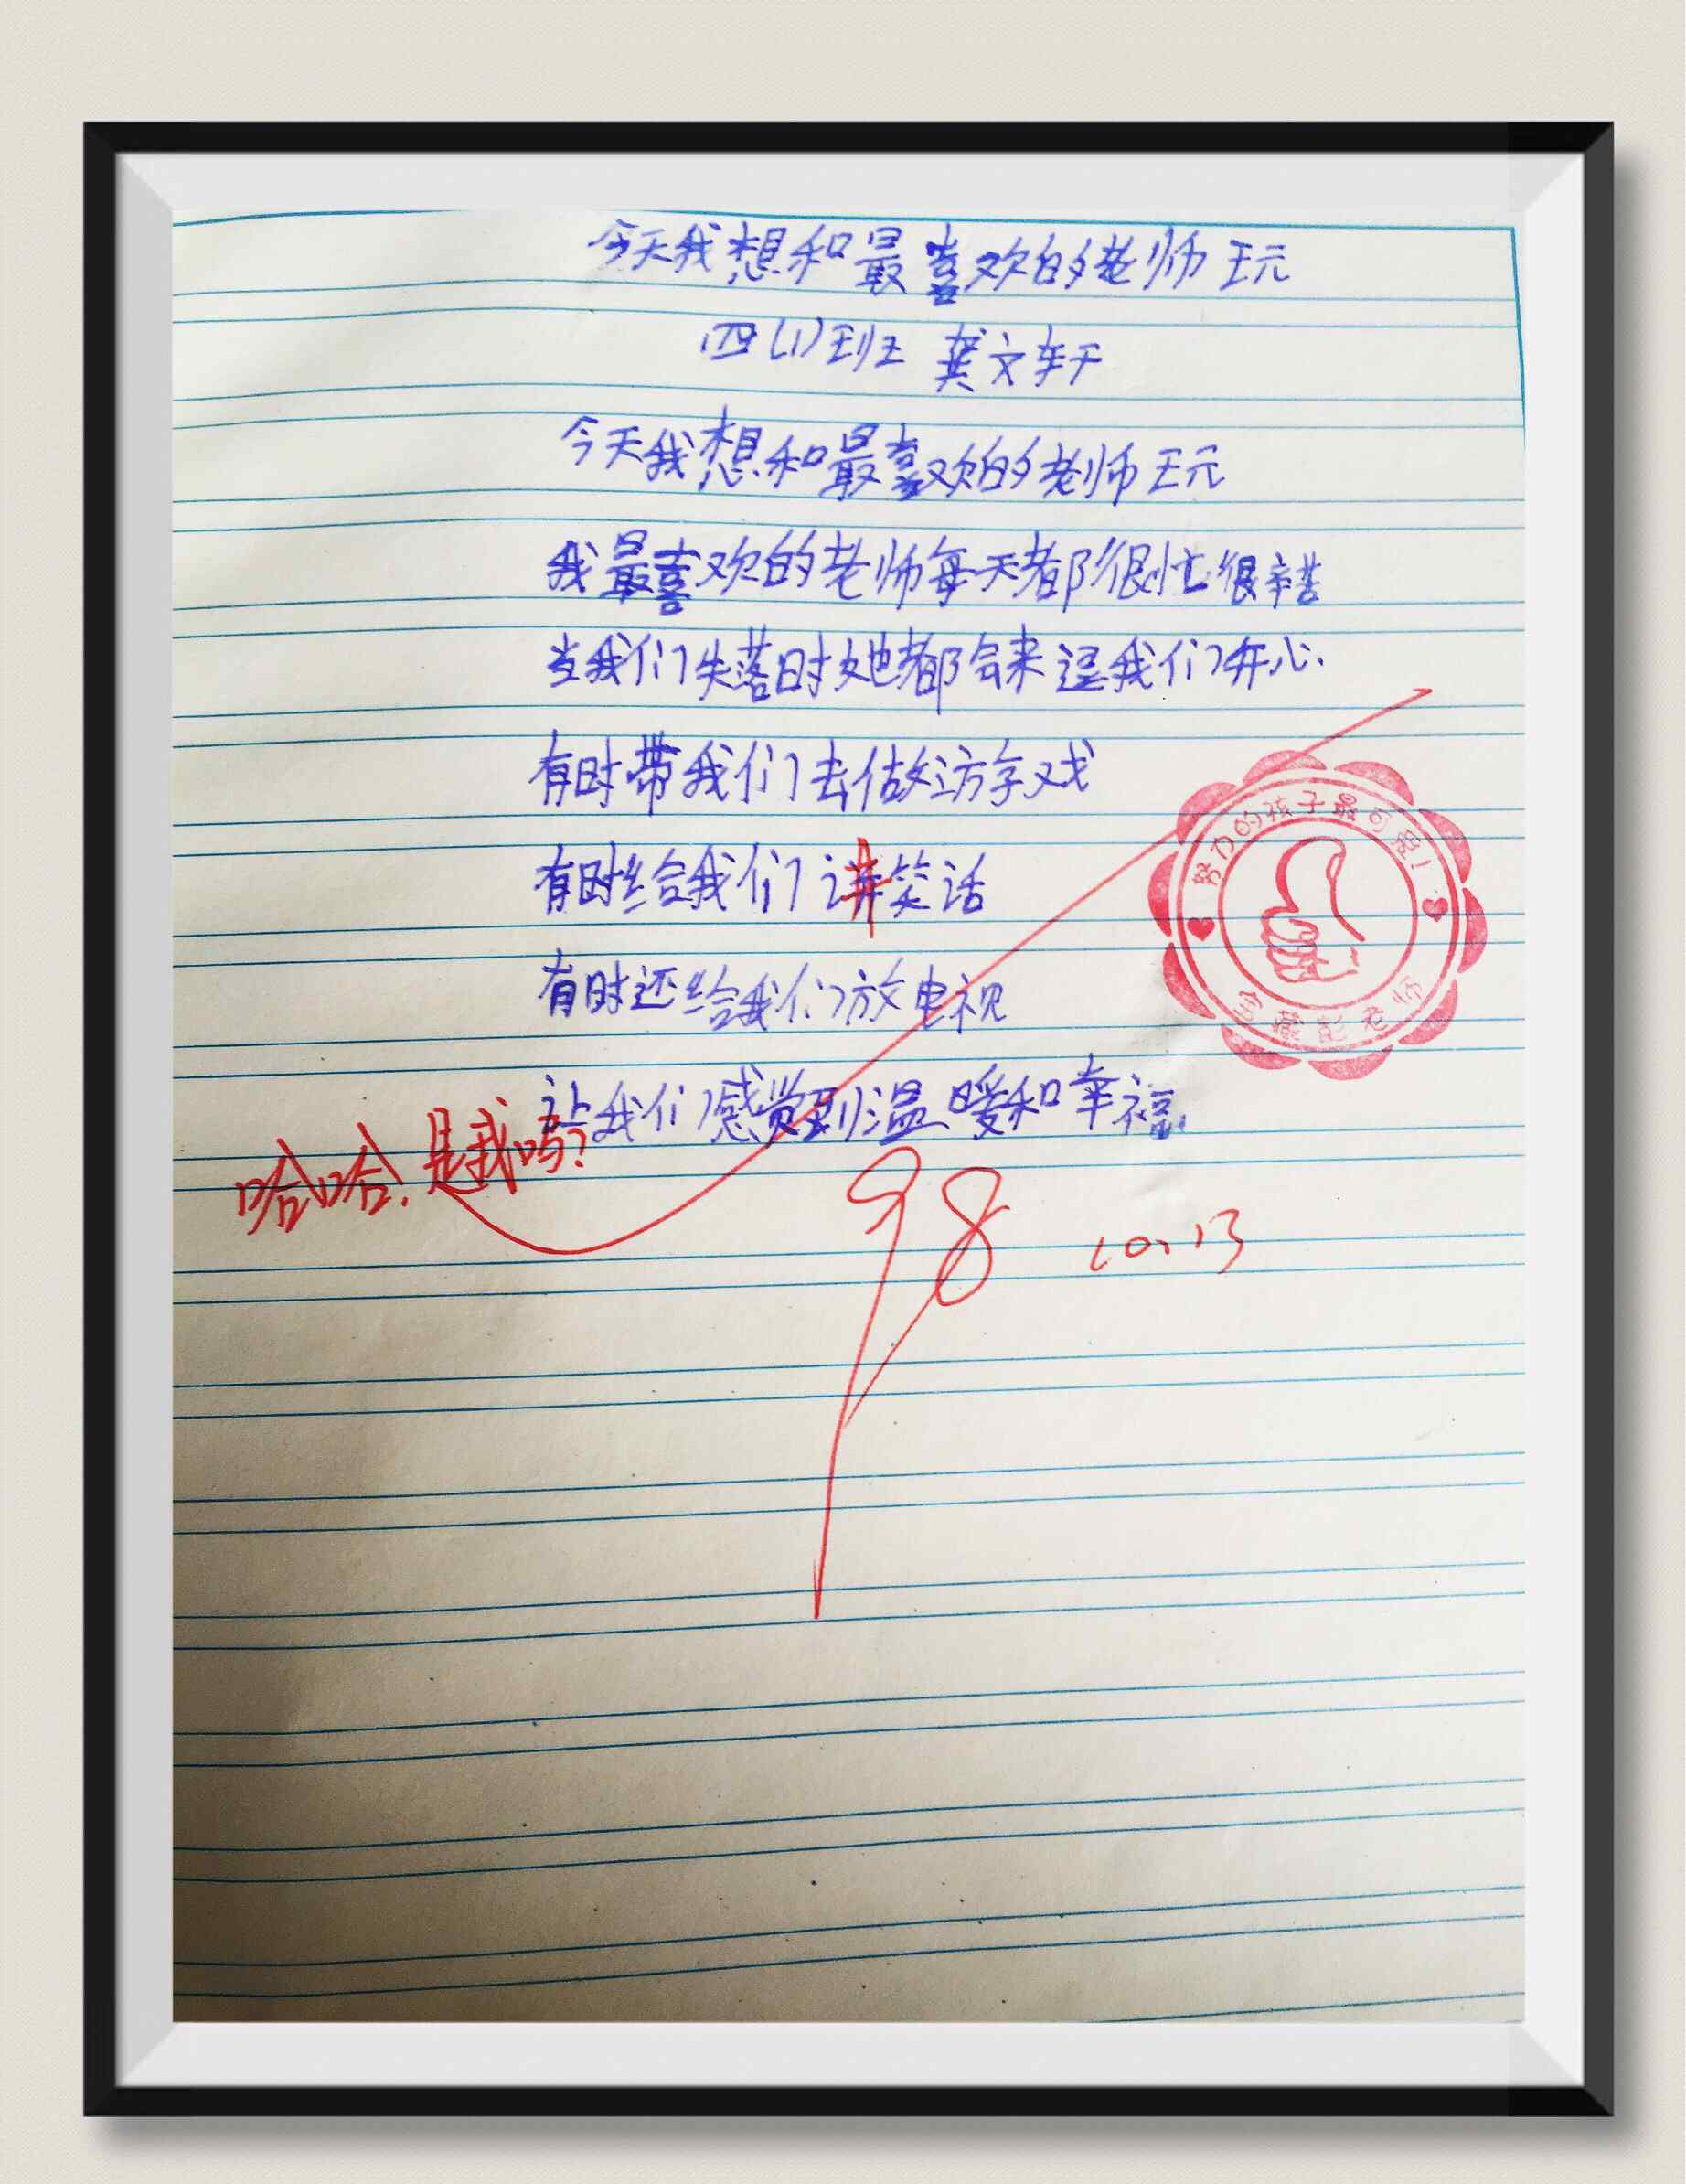 今天我想和最喜欢的老师玩
四(1)班 龚文轩
今天我想和最喜欢的老师玩
我最喜欢的老师每天都很忙很辛苦
当我们失落时她都会来逗我们开心.
有时带我们去做游戏
有时给我们讲笑话
有时还给我们放电视
让我们感觉到温暖和幸福.
哈哈.是我吗?
98
10.13
努力的孩子最可爱!
彭老师